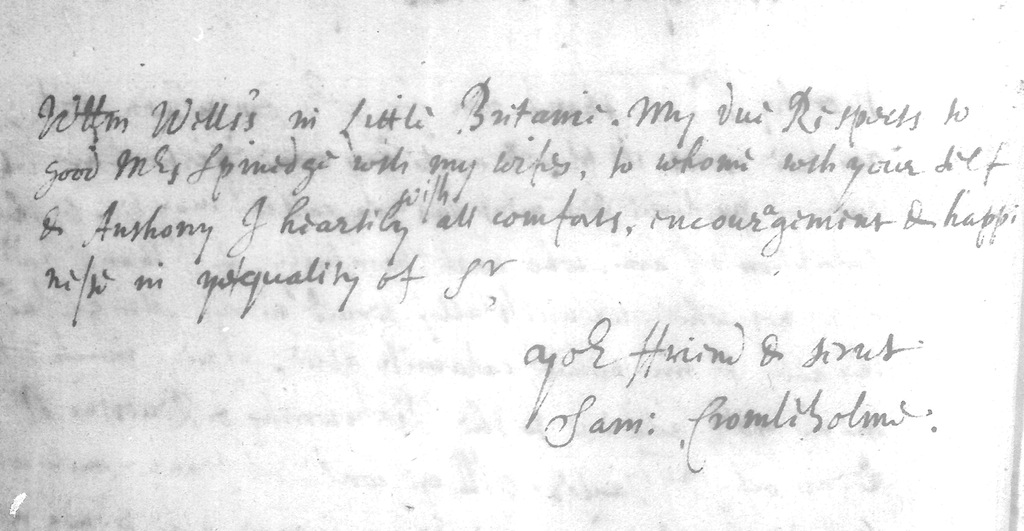 Willm Wells's in Little Britanie. My due Respects to
good Mrs Spinedge with my wifes, to whome with your self
& Anthony I heartily wish all comforts, encouragement & happi
nesse in ye quality of Sr
yor ffriend & servt
Sam: Cromleholme: